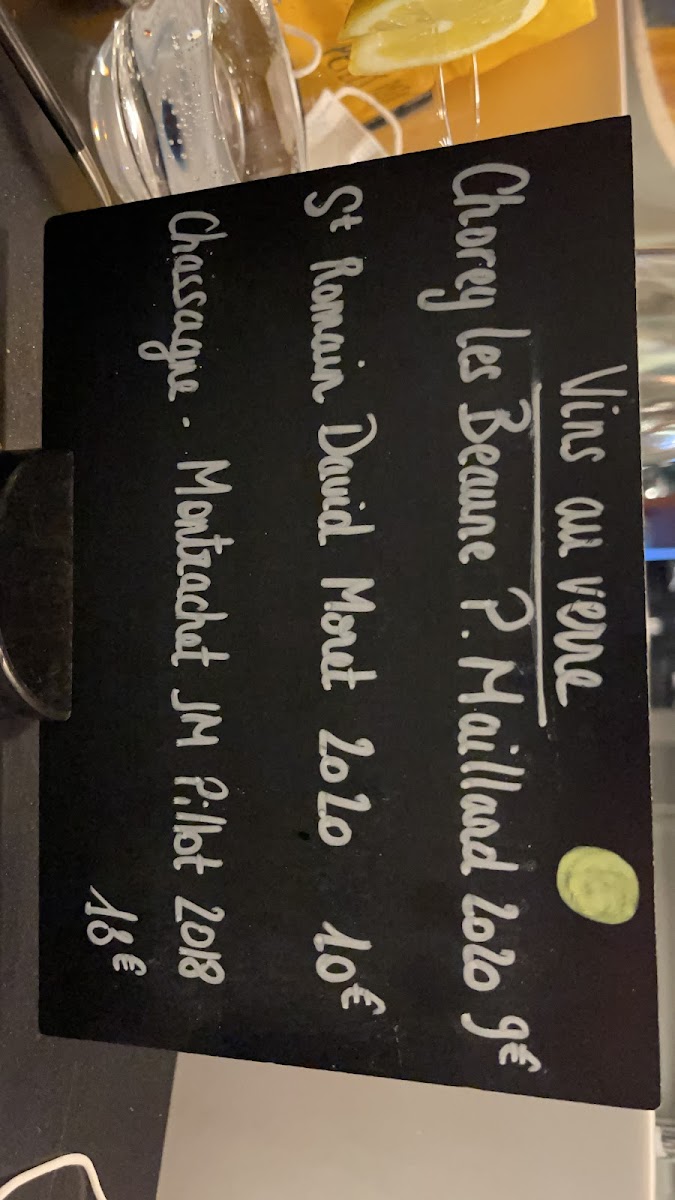 Vins au verre
Chorey les Beaune P. Maillard 2020 9€
St Romain David Moret 2020 10€
Chassagne - Montrachet JM Pillot 2018
18€